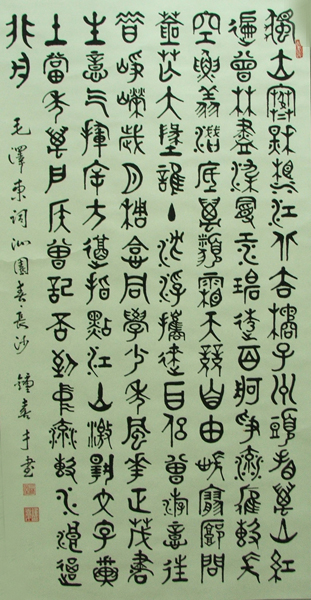 獨立寒秋湘江北去橘子洲頭看萬山紅
遍層林盡染漫江碧透百舸爭流鷹擊長
空魚翔淺底萬類霜天競自由悵寥廓問
蒼茫大地誰主沈浮攜來百侶曾游憶往
昔崢嶸歲月稠恰同學少年風華正茂書
生意气揮斥方遒指點江山激揚文字糞
土當年萬戶侯曾記否到中流擊水浪遏
飛舟
毛澤東詞沁園春長沙 鐘 書